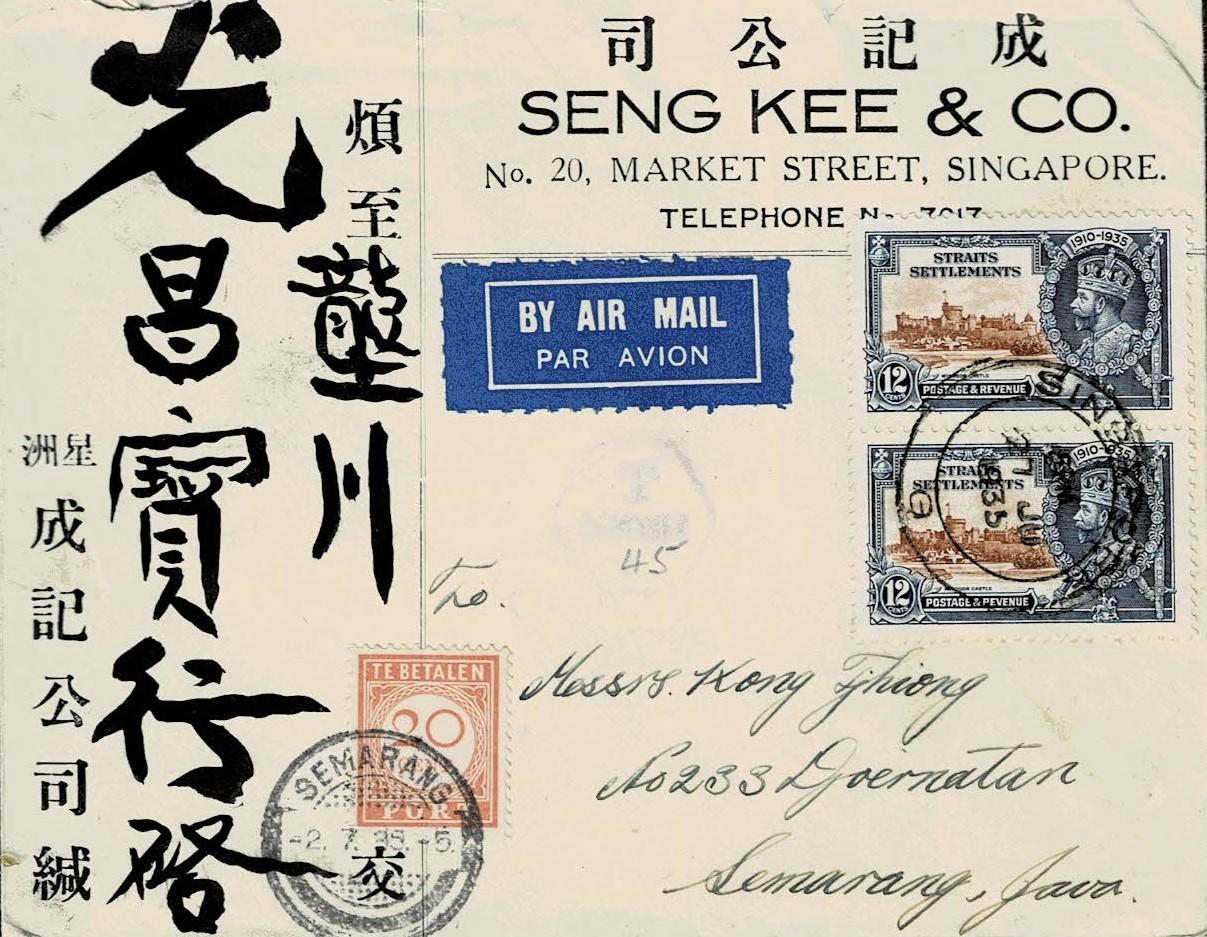 成記公司
SENG KEE & CO.
No. 20, MARKET STREET, SINGAPORE.
TELEPHONE No.
煩至壟川交
光昌寶行啓
星洲成記公司緘
BY AIR MAIL
PAR AVION
1910-1935
STRAITS
SETTLEMENTS
WINDSOR CASTLE
12
CENTS
POSTAGE & REVENUE
1910-1935
STRAITS
SETTLEMENTS
WINDSOR CASTLE
12
CENTS
POSTAGE & REVENUE
1935
T
45
To.
Messrs. Kong Tjhiong
No 233 Djoernatan
Semarang, Java.
TE BETALEN
20
PORT
SEMARANG
-2.7.35.-5.